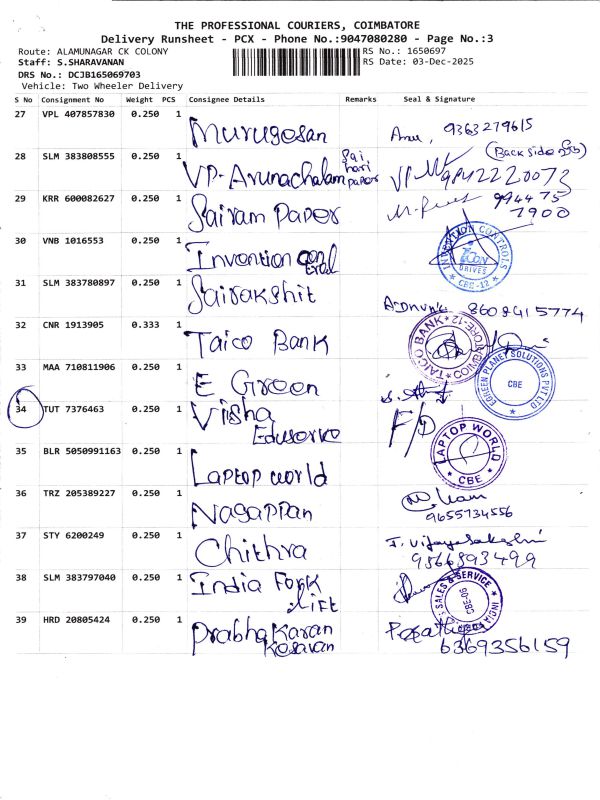 THE PROFESSIONAL COURIERS, COIMBATORE
Delivery Runsheet - PCX - Phone No.:9047080280 - Page No.:3
Route: ALAMUNAGAR CK COLONY RS No.: 1650697
Staff: S.SHARAVANAN RS Date: 03-Dec-2025
DRS No.: DCJB165069703
Vehicle: Two Wheeler Delivery
S No Consignment No Weight PCS Consignee Details Remarks Seal & Signature
27 VPL 407857830 0.250 1 Murugesan 9363279615
28 SLM 383808555 0.250 1 VP-Arunachalam Sai hari paper (Back side 9842220073
29 KRR 600082627 0.250 1 Sairam Paper 994475
7900
30 VNB 1016553 0.250 1 Invention control INVENTION CONTROLS ICON DRIVES CBE-12
31 SLM 383780897 0.250 1 Sairakshit 8608415774
32 CNR 1913905 0.333 1 Taico Bank TAICO BANK COIMBATORE-12
33 MAA 710811906 0.250 1 E Green EGREEN PLANET SOLUTIONS PVT LTD CBE
34 TUT 7376463 0.250 1 Viisha F/D
35 BLR 5050991163 0.250 1 Laptop world LAPTOP WORLD CBE
36 TRZ 205389227 0.250 1 Nagappan 9655734556
37 STY 6200249 0.250 1 Chithra J. Vijayalakshmi
9566893499
38 SLM 383797040 0.250 1 India Fork lift SALES & SERVICE INDIA
39 HRD 20805424 0.250 1 Prabhakaran Kesavan 6369356159